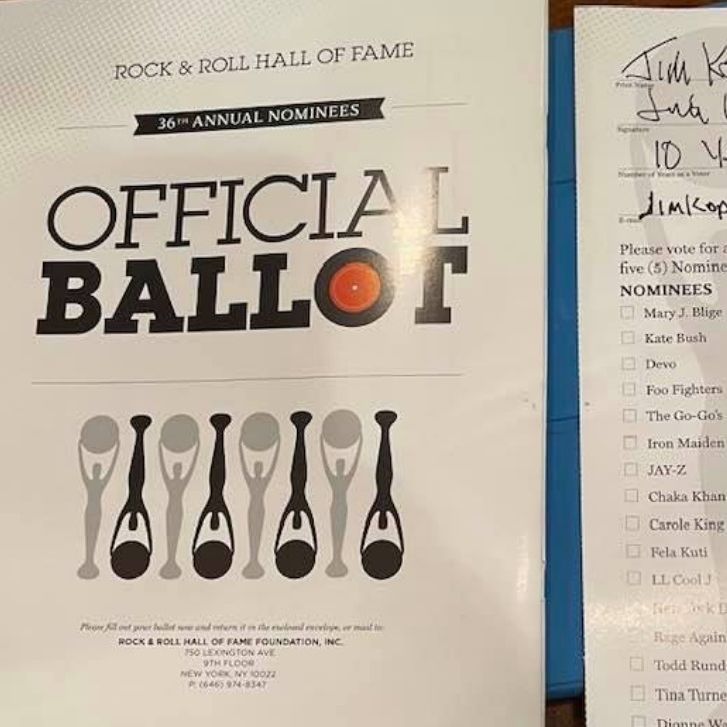 ROCK & ROLL HALL OF FAME
36TH ANNUAL NOMINEES
OFFICIAL
BALLOT
Please fill out your ballot now and return it in the enclosed envelope, or mail to:
ROCK & ROLL HALL OF FAME FOUNDATION, INC.
750 LEXINGTON AVE
9TH FLOOR
NEW YORK, NY 10022
P: (646) 974-8347
Jim
Print Name
Signature
10
Number of Years as a Voter
JimKop
E-mail
Please vote for
five (5) Nomine
NOMINEES
Mary J. Blige
Kate Bush
Devo
Foo Fighters
The Go-Go's
Iron Maiden
JAY-Z
Chaka Khan
Carole King
Fela Kuti
LL Cool J
New York D
Rage Again
Todd Rund
Tina Turne
Dionne W